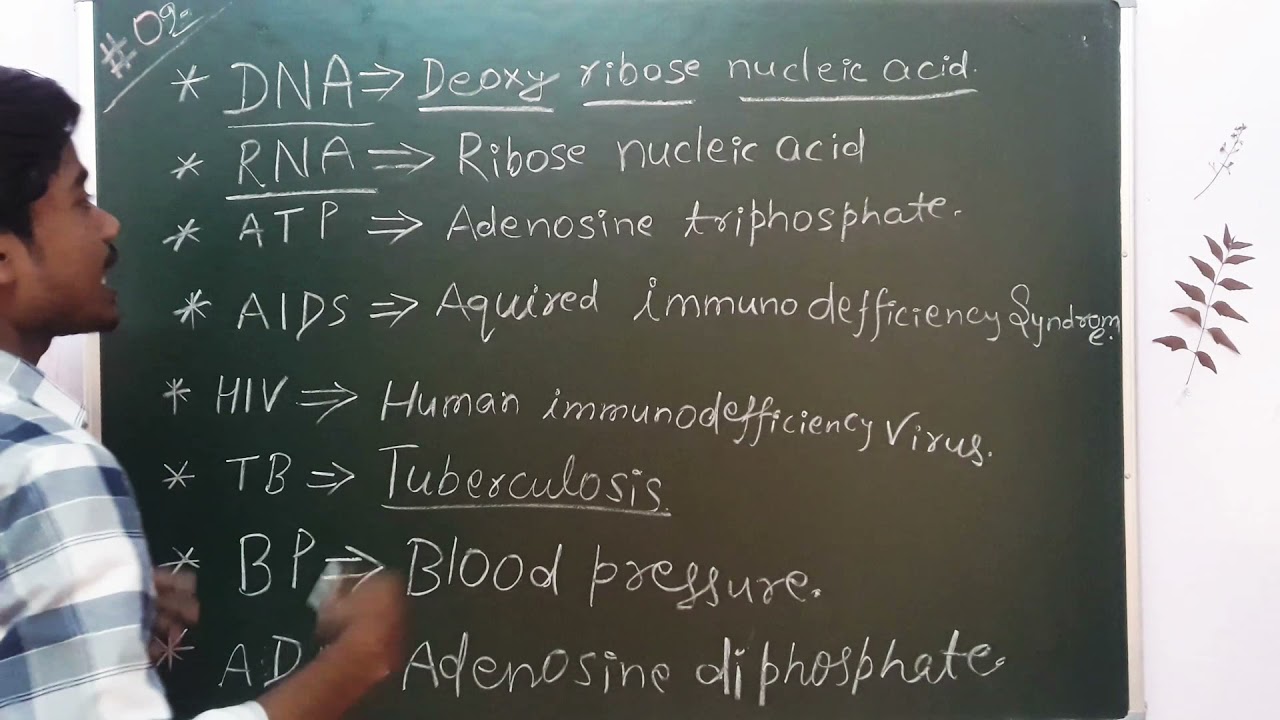 #09
* DNA ⇒ Deoxy ribose nucleic acid.
* RNA ⇒ Ribose nucleic acid
* ATP ⇒ Adenosine triphosphate.
* AIDS ⇒ Aquired immuno defficiency Syndrome.
* HIV ⇒ Human immunodefficiency Virus.
* TB ⇒ Tuberculosis.
* BP ⇒ Blood pressure.
* AD Adenosine diphosphate.